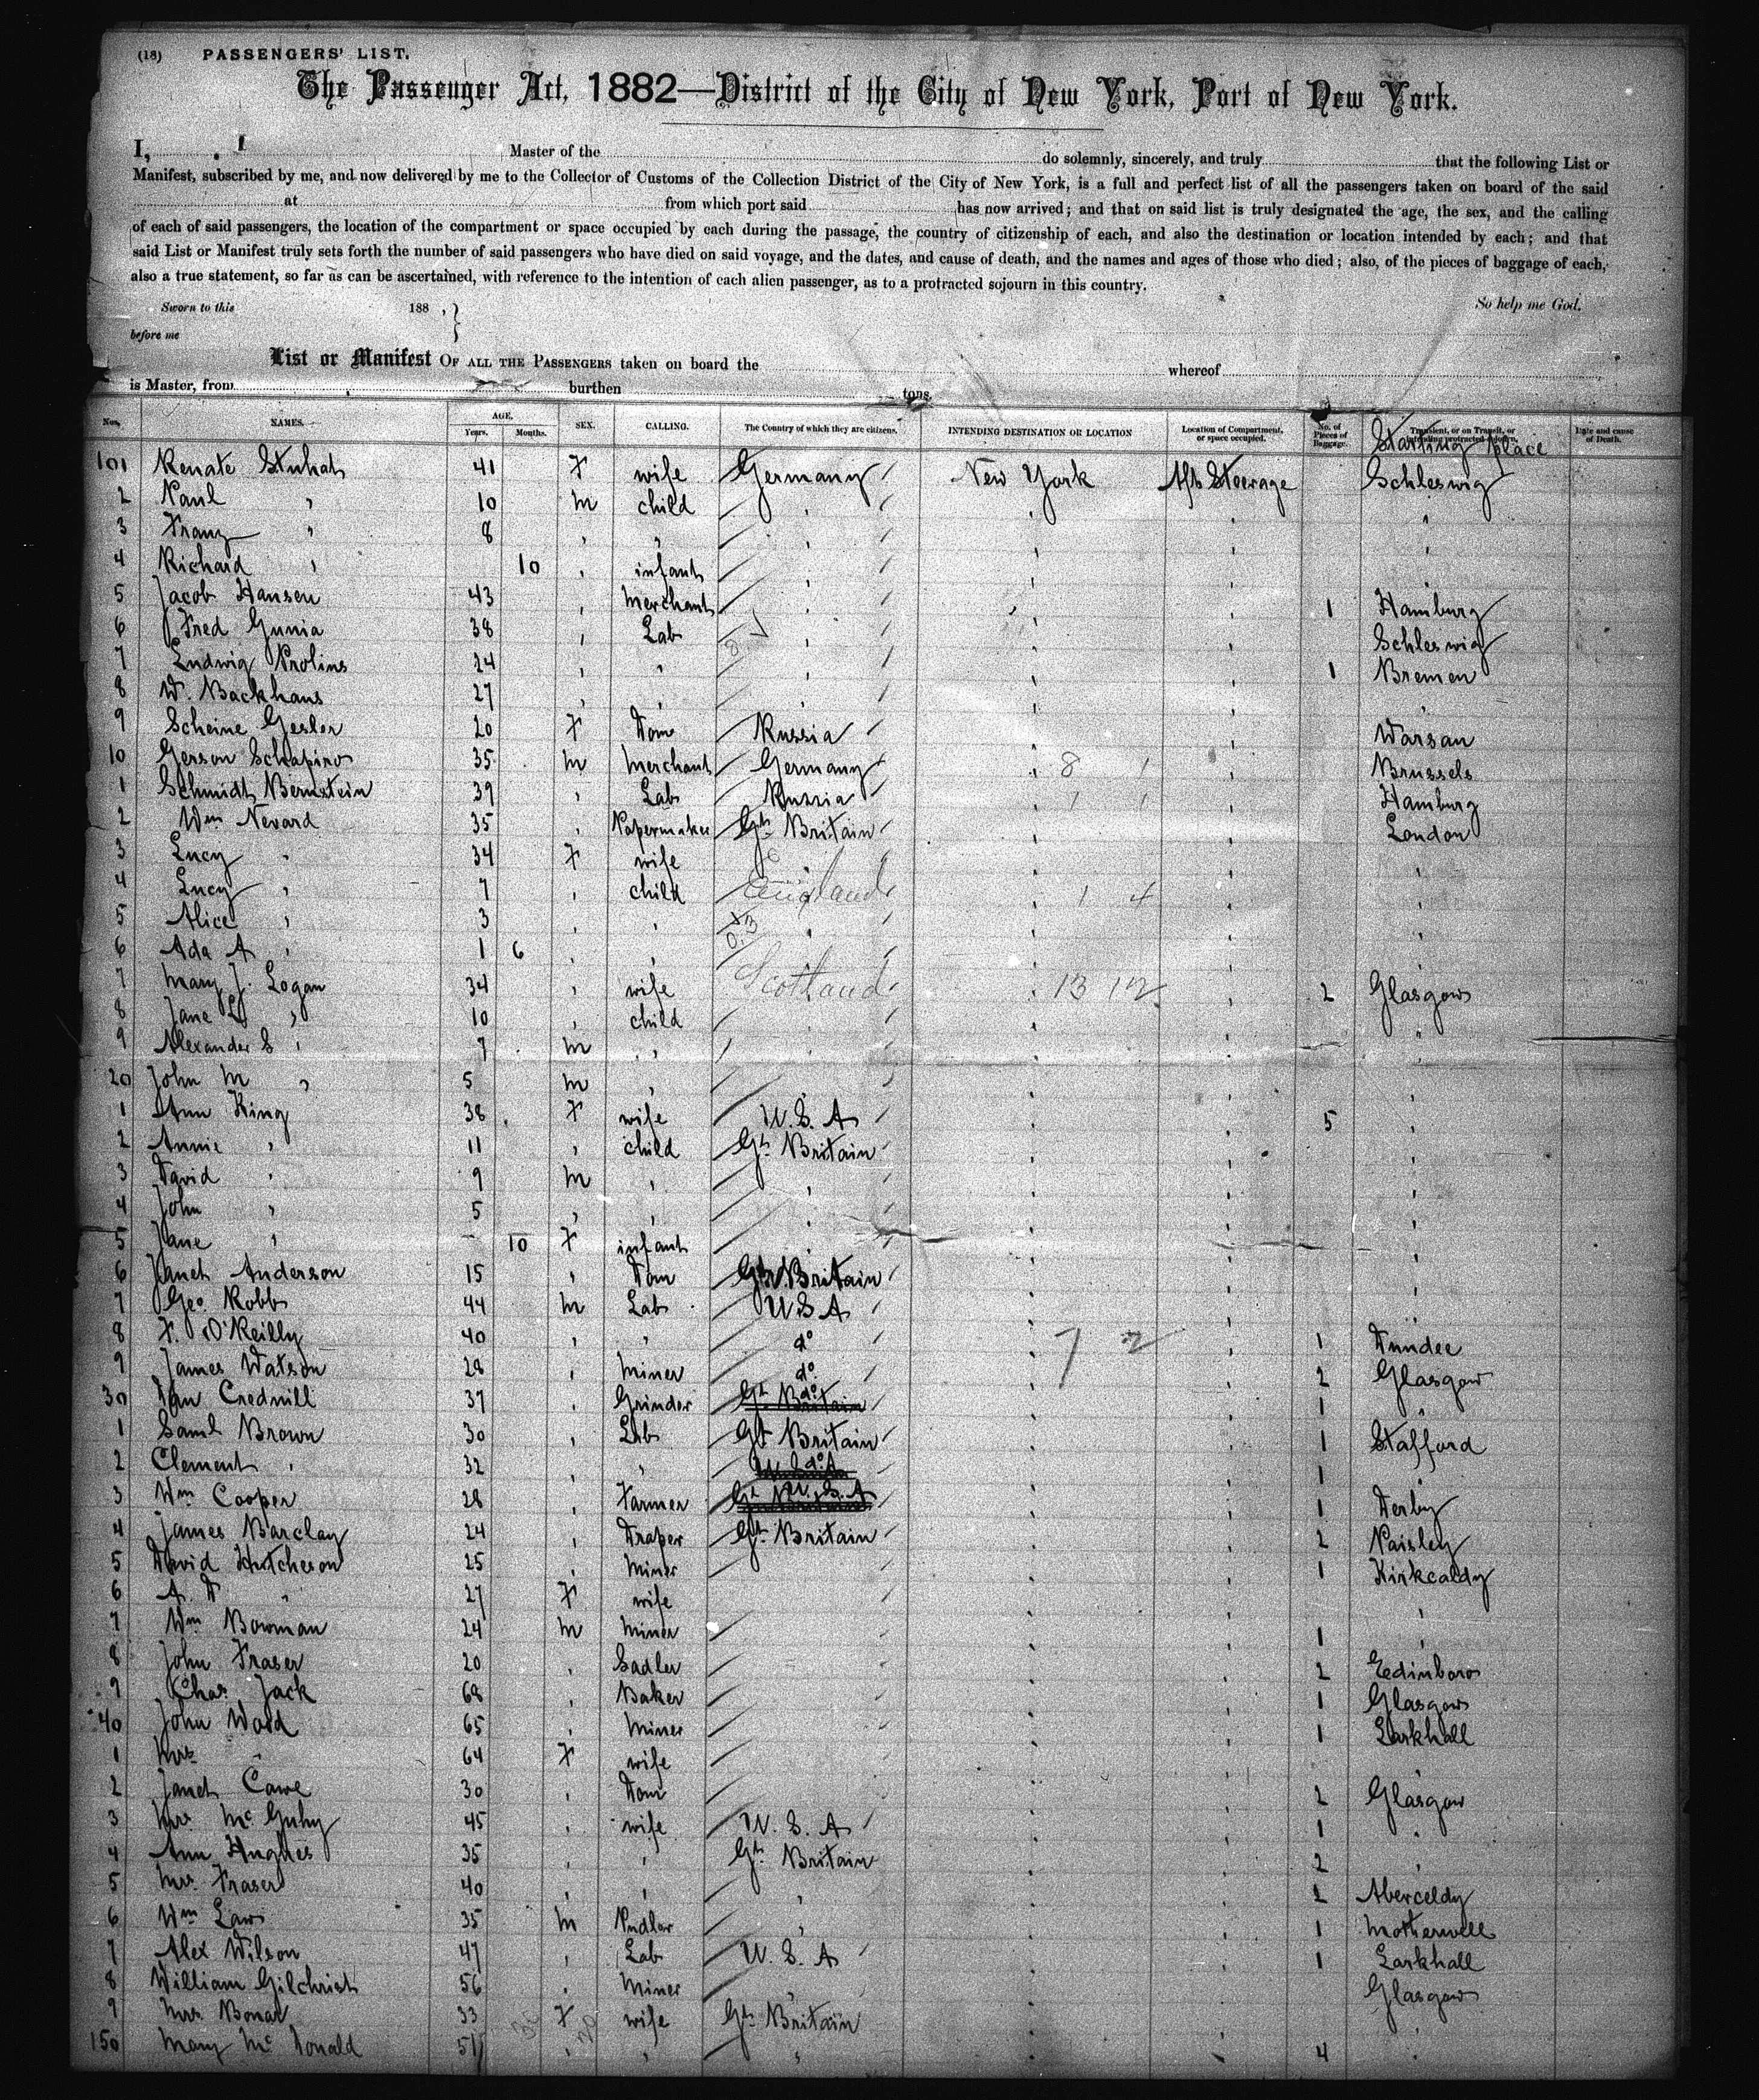 (18) PASSENGERS' LIST.
The Passenger Act, 1882—District of the City of New York, Port of New York.
I, Master of the do solemnly, sincerely, and truly that the following List or
Manifest, subscribed by me, and now delivered by me to the Collector of Customs of the Collection District of the City of New York, is a full and perfect list of all the passengers taken on board of the said
at from which port said has now arrived; and that on said list is truly designated the age, the sex, and the calling
of each of said passengers, the location of the compartment or space occupied by each during the passage, the country of citizenship of each, and also the destination or location intended by each; and that
said List or Manifest truly sets forth the number of said passengers who have died on said voyage, and the dates, and cause of death, and the names and ages of those who died; also, of the pieces of baggage of each,
also a true statement, so far as can be ascertained, with reference to the intention of each alien passenger, as to a protracted sojourn in this country.
Sworn to this 188 , So help me God.
before me
List or Manifest OF ALL THE PASSENGERS taken on board the whereof
is Master, from burthen tons.
Nos. NAMES. AGE. Years. Months. SEX. CALLING. The Country of which they are citizens. INTENDING DESTINATION OR LOCATION Location of Compartment, or space occupied. No. of Pieces of Baggage. Transient, or on Transit, or intending protracted sojourn. Starting place Date and cause of Death.
101 Renate 41 F wife Germany New York Aft Steerage Schleswig
2 Paul " 10 m child " " " "
3 Franz " 8 " " " " " "
4 Richard " 10 " infant " " "
5 Jacob Hansen 43 " Merchant " " " 1 Hamburg
6 Fred Gunia 38 " Lab " " " Schleswig
7 Ludwig Prolins 24 " " " " " 1 Bremen
8 W. Backhaus 27 " " " " " "
9 Scheine Gesler 20 F Dom Russia " " Warsaw
10 Gerson Schapiro 35 m Merchant Germany " 8 1 " Brussels
1 Schmidt Bernstein 39 " Lab Russia " 1 1 " Hamburg
2 Wm Nevard 35 " Papermaker Gt Britain " " London
3 Lucy " 34 F wife " " " "
4 Lucy " 7 " child England " 1 4 " "
5 Alice " 3 " " " " " "
6 Ada A " 1 6 " " " " "
7 Mary J. Logan 34 " wife Scotland " 13 12 " 2 Glasgow
8 Jane " 10 " child " " " "
9 Alexander S " 7 m " " " " "
20 John M " 5 m " " " " "
1 Ann King 38 F wife U. S. A " " 5 "
2 Annie " 11 " child Gt Britain " " "
3 David " 9 m " " " " "
4 John " 5 " " " " " "
5 Jane " 10 F infant " " " "
6 Janet Anderson 15 " Dom Gt Britain " " "
7 Geo. Robb 44 m Lab U S A " " "
8 F. O'Reilly 40 " " do " 7 2 " 1 Dundee
9 James Watson 28 " Miner do " " 2 Glasgow
30 Dan Crednill 37 " Grinder Gt Britain do " " 1 "
1 Saml Brown 30 " Lab Gt Britain " " 1 Stafford
2 Clement " 32 " " U. S. A do " " 1 "
3 Wm Cooper 28 " Farmer Gt Britain U. S. A " " 1 Derby
4 James Barclay 24 " Draper Gt Britain " " 2 Paisley
5 David Hutcheson 25 " Miner " " 1 Kirkcaldy
6 A. D " 27 F wife " " "
7 Wm Bowman 24 m Miner " " 1 "
8 John Fraser 20 " Sadler " " 2 Edinboro
9 Chas Jack 68 " Baker " " 1 Glasgow
40 John Ward 65 " Miner " " 1 Larkhall
1 Mrs " 64 F wife " " "
2 Janet Cawe 30 " Dom " " 2 Glasgow
3 Mrs Mc Guhy 45 " wife U. S. A " " 1 "
4 Ann Hughes 35 " " Gt Britain " " 2 "
5 Mrs. Fraser 40 " " " " " 2 Aberceldy
6 Wm Law 35 m Pudlar " " " 1 Motherwell
7 Alex Wilson 47 " Lab U. S. A " " 1 Larkhall
8 William Gilchrist 56 " Miner " " " Glasgow
9 Mrs. Bonar 33 F wife Gt Britain " " "
150 Mary Mc Donald 51 " " " " " 4 "